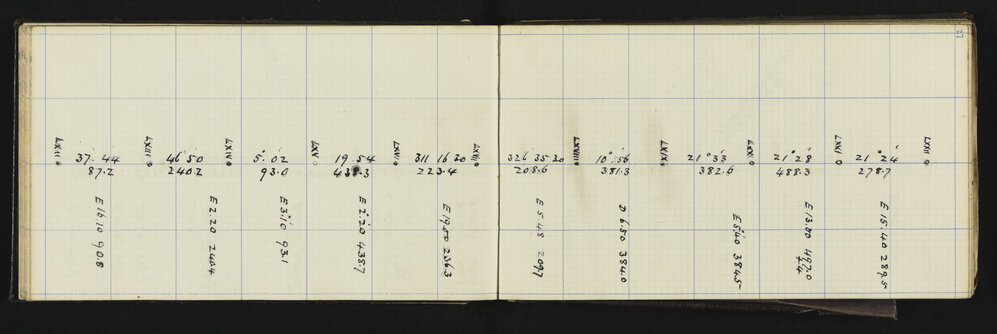 LXII
37° 44'
87.2
E 16.10 90.8
LXIII
46° 50
240.2
E 2.20 240.4
LXIV
5° 02
93.0
E 3°.10 93.1
LXV
19° 54
438.3
E 2°.20 438.7
LXVI
311 16 20
223.4
E 19.00 236.3
LXVII
326° 35 20
208.6
E 5.48 209.7
LXVIII
10° 56
381.3
D 6.50 384.0
LXIX
21° 33
382.6
E 5°.40 384.5
LXX
21° 28'
488.3
E 13.80 497.0
LXXI
21° 24'
278.7
E 15.40 289.5
LXXII